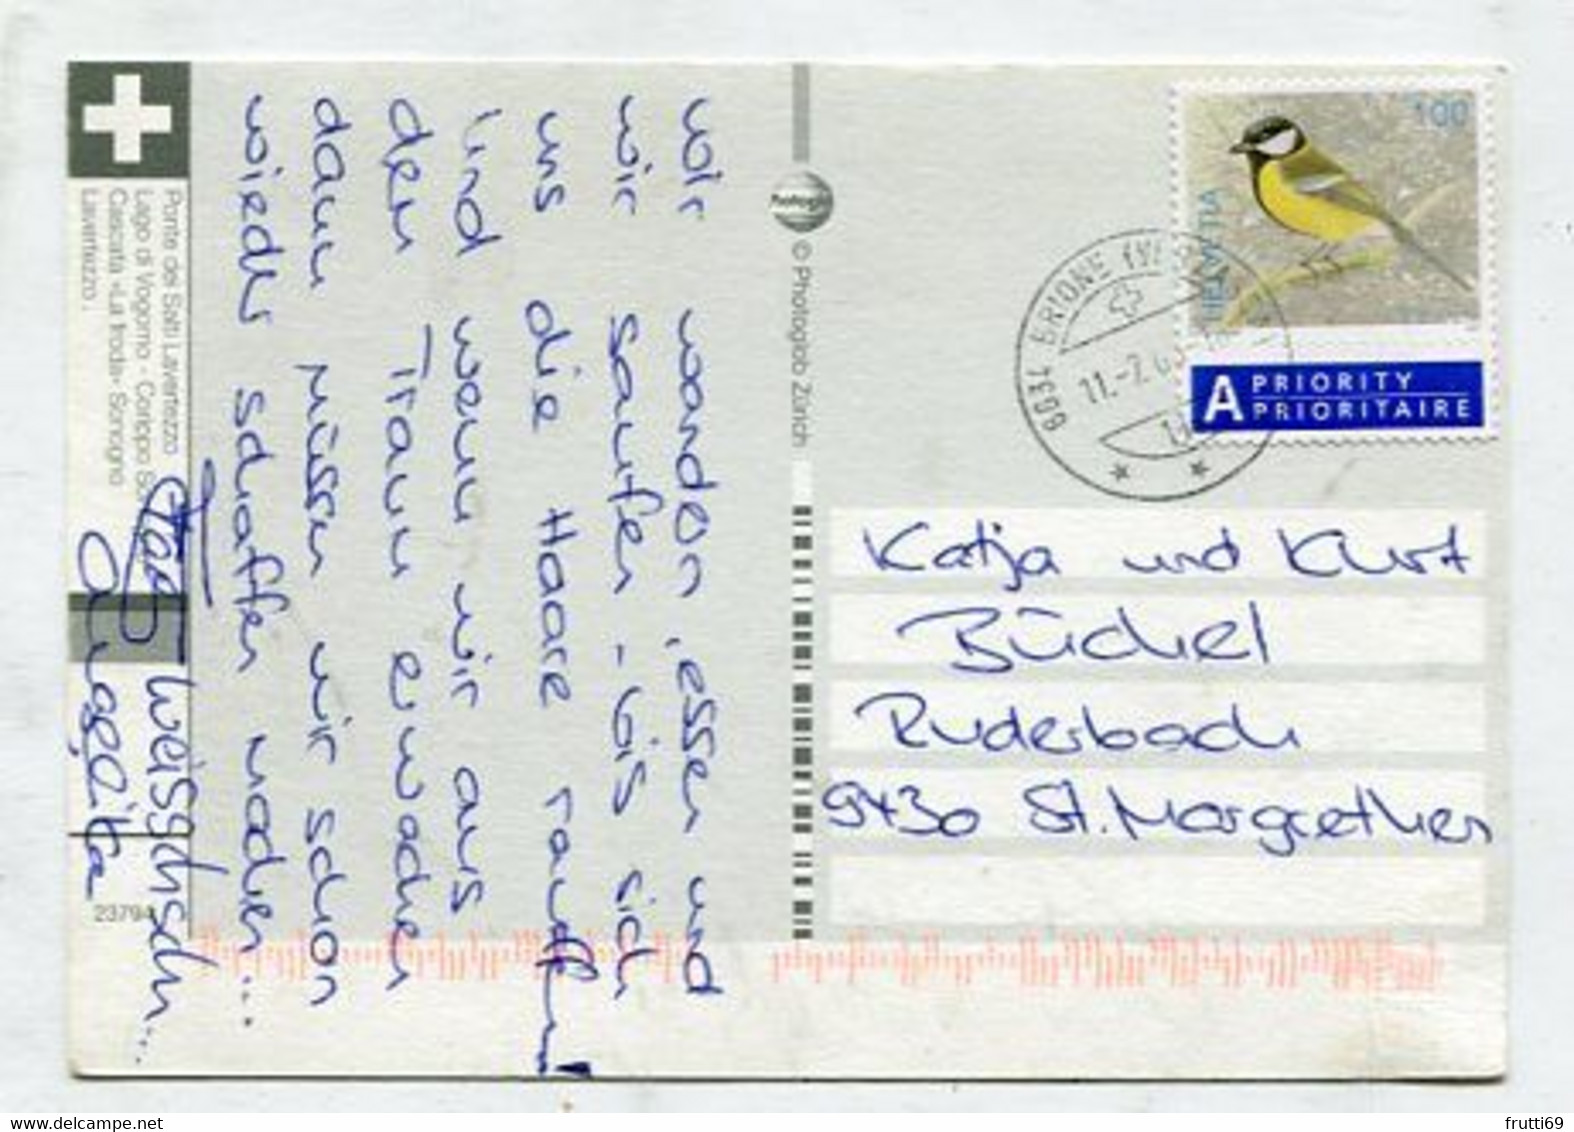 wir wandern, essen und
wir saufen - bis sich
uns die Haare raufen!
Und wenn wir aus
dem Traum erwachen
dann müssen wir schon
wieder schaffen machen...
Weisgchsch...
Angelita
Ponte dei Salti Lavertezzo
Lago di Vogorno - Corippo
Cascata «La froda» Sonogno
Lavertezzo.
23794
Photoglob
© Photoglob Zürich
100
HELVETIA
A PRIORITY
PRIORITAIRE
6634 BRIONE (VE
11.-7.
Katja und Kurt
Büchel
Ruderbach
9430 St. Margrethen
frutti69